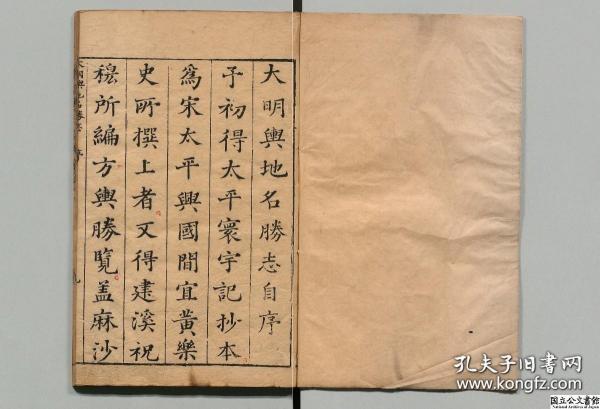 大明輿地名勝志自序
予初得太平寰宇記抄本
爲宋太平興國間宜黃樂
史所撰上者又得建溪祝
穆所編方輿勝覽盖麻沙
孔夫子旧书网
www.kongfz.com
国立公文書館
National Archives of Japan